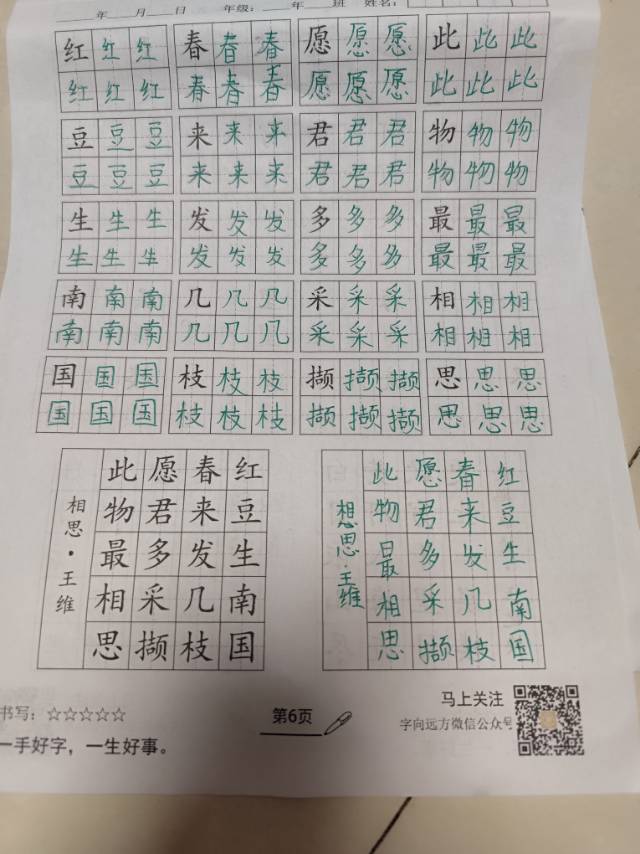 年 月 日 年级： 年 班 姓名：
红 红 红 春 春 春 愿 愿 愿 此 此 此
红 红 红 春 春 春 愿 愿 愿 此 此 此
豆 豆 豆 来 来 来 君 君 君 物 物 物
豆 豆 豆 来 来 来 君 君 君 物 物 物
生 生 生 发 发 发 多 多 多 最 最 最
生 生 生 发 发 发 多 多 多 最 最 最
南 南 南 几 几 几 采 采 采 相 相 相
南 南 南 几 几 几 采 采 采 相 相 相
国 国 国 枝 枝 枝 撷 撷 撷 思 思 思
国 国 国 枝 枝 枝 撷 撷 撷 思 思 思
红豆生南国
春来发几枝
愿君多采撷
此物最相思
相思·王维
红豆生南国
春来发几枝
愿君多采撷
此物最相思
想思·王维
书写：☆☆☆☆☆
一手好字，一生好事。
第6页
马上关注
字向远方微信公众号